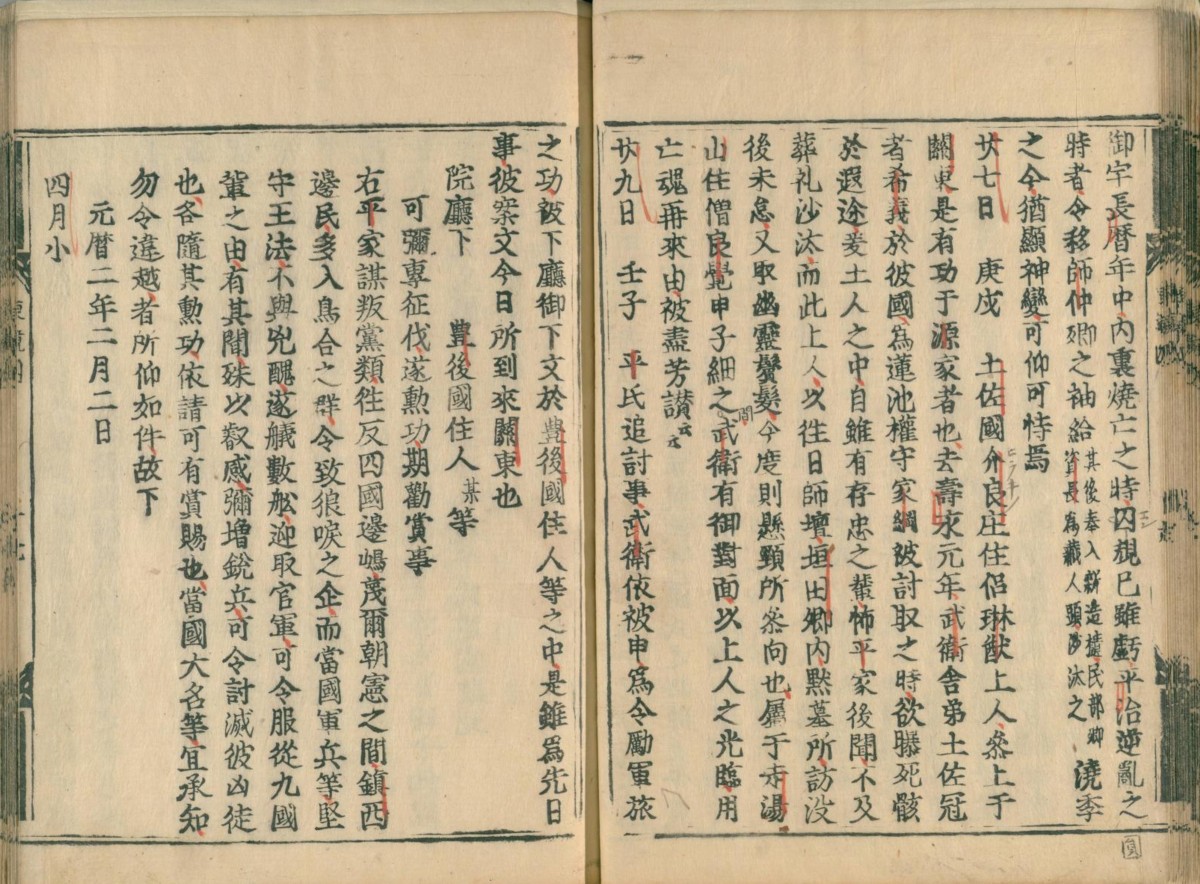 御宇長暦年中内裏燒亡之時囚規已雖虧平治逆亂之
時者令移師仲卿之袖給其後奉入新造櫃民部卿資長爲藏人頭沙汰之澆季
之今猶顯神變可仰可恃焉
廿七日　庚戌　土佐國介良庄住侶琳猷上人叅上于
關東是有功于源家者也去壽永元年武衛舎弟土佐冠
者希義於彼國爲蓮池權守家綱被討取之時欲曝死骸
於遐途爰土人之中自雖有存忠之輩怖平家後聞不及
葬礼沙汰而此上人以往日師壇垣田卿内點墓所訪没
後未怠又取幽靈鬢髮今度則懸頸所叅向也屬于走湯
山住僧良覺申子細之間武衛有御對面以上人之光臨用
亡魂再來由被盡芳讃云云
廿九日　壬子　平氏追討事武衛依被申爲令勵軍旅
之功被下廳御下文於豊後國住人等之中是雖爲先日
事彼案文今日所到來關東也
院廳下　豊後國住人某等
可彌專征伐遂勲功期勸賞事
右平家謀叛黨類徃反四國邊嶋蔑爾朝憲之間鎮西
邊民多入鳥合之群令致狼唳之企而當國軍兵等堅
守王法不與兇醜遂艤數舩迎取官軍可令服從九國
輩之由有其聞殊以叡感彌増鋭兵可令討滅彼凶徒
也各隨其勲功依請可有賞賜也當國大名等宜承知
勿令違越者所仰如件故下
元暦二年二月二日
四月小
東鏡四